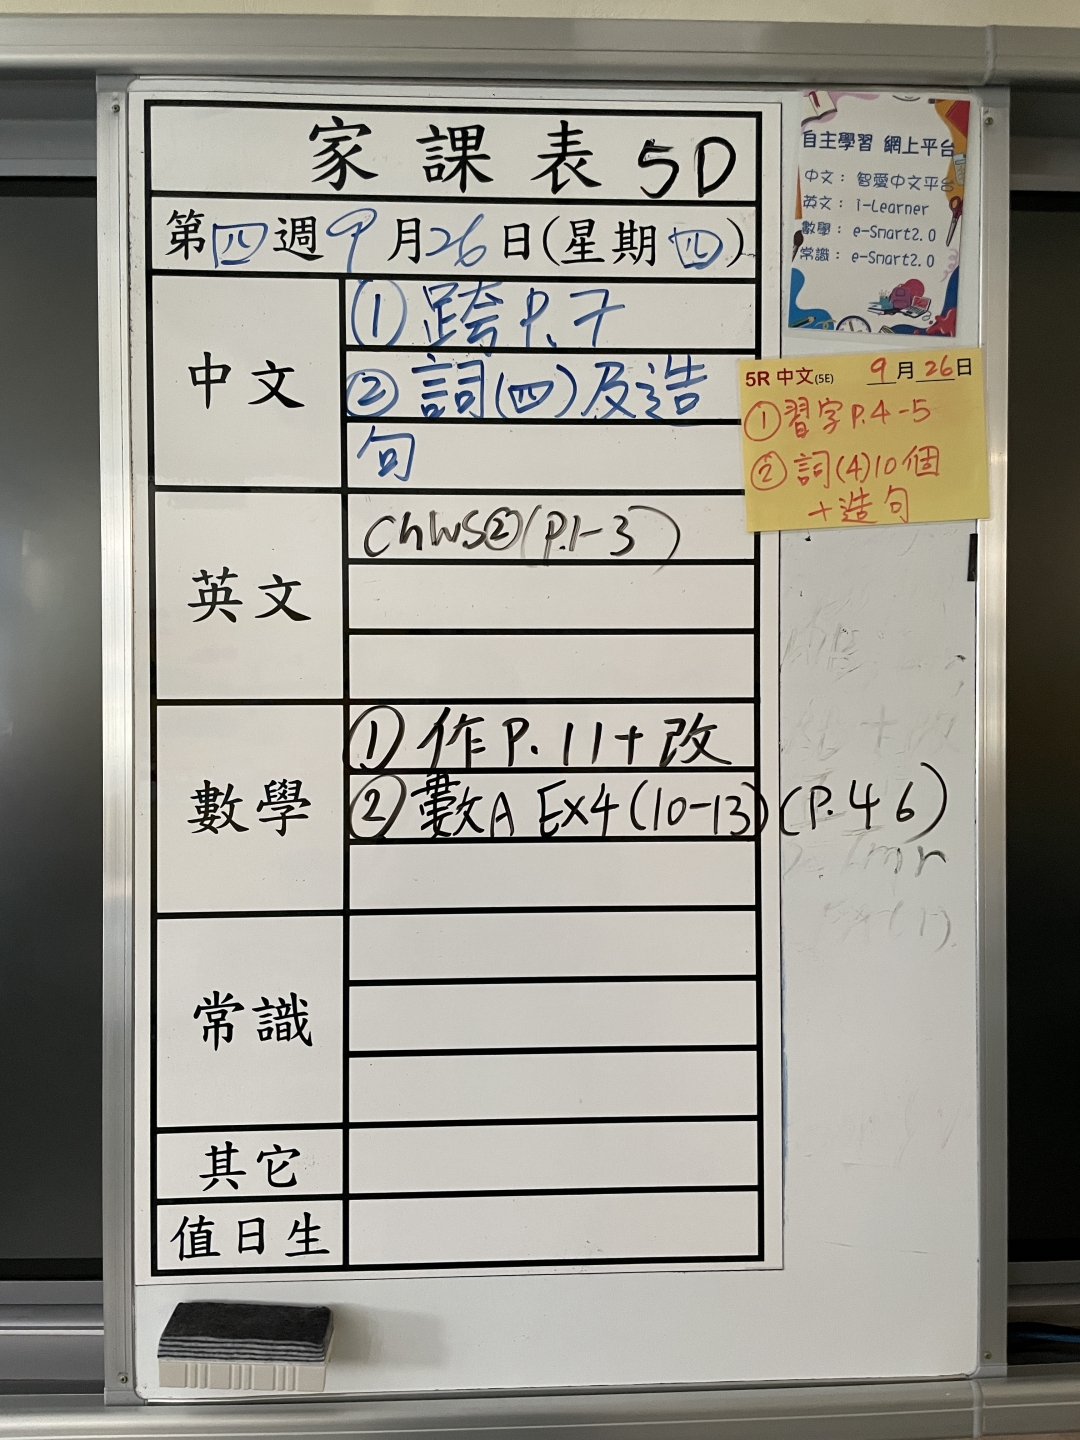 家課表 5D
第四週 9月26日(星期四)
中文
① 跨 P.7
② 詞(四)及造
句
英文
ChWS②(P.1-3)
數學
① 作 P.11+改
② 數A Ex4(10-13)(P.46)
常識
其它
值日生
自主學習 網上平台
中文： 智愛中文平台
英文： i-Learner
數學： e-Smart2.0
常識： e-Smart2.0
5R 中文(5E) 9月26日
①習字P.4-5
②詞(4)10個
+造句